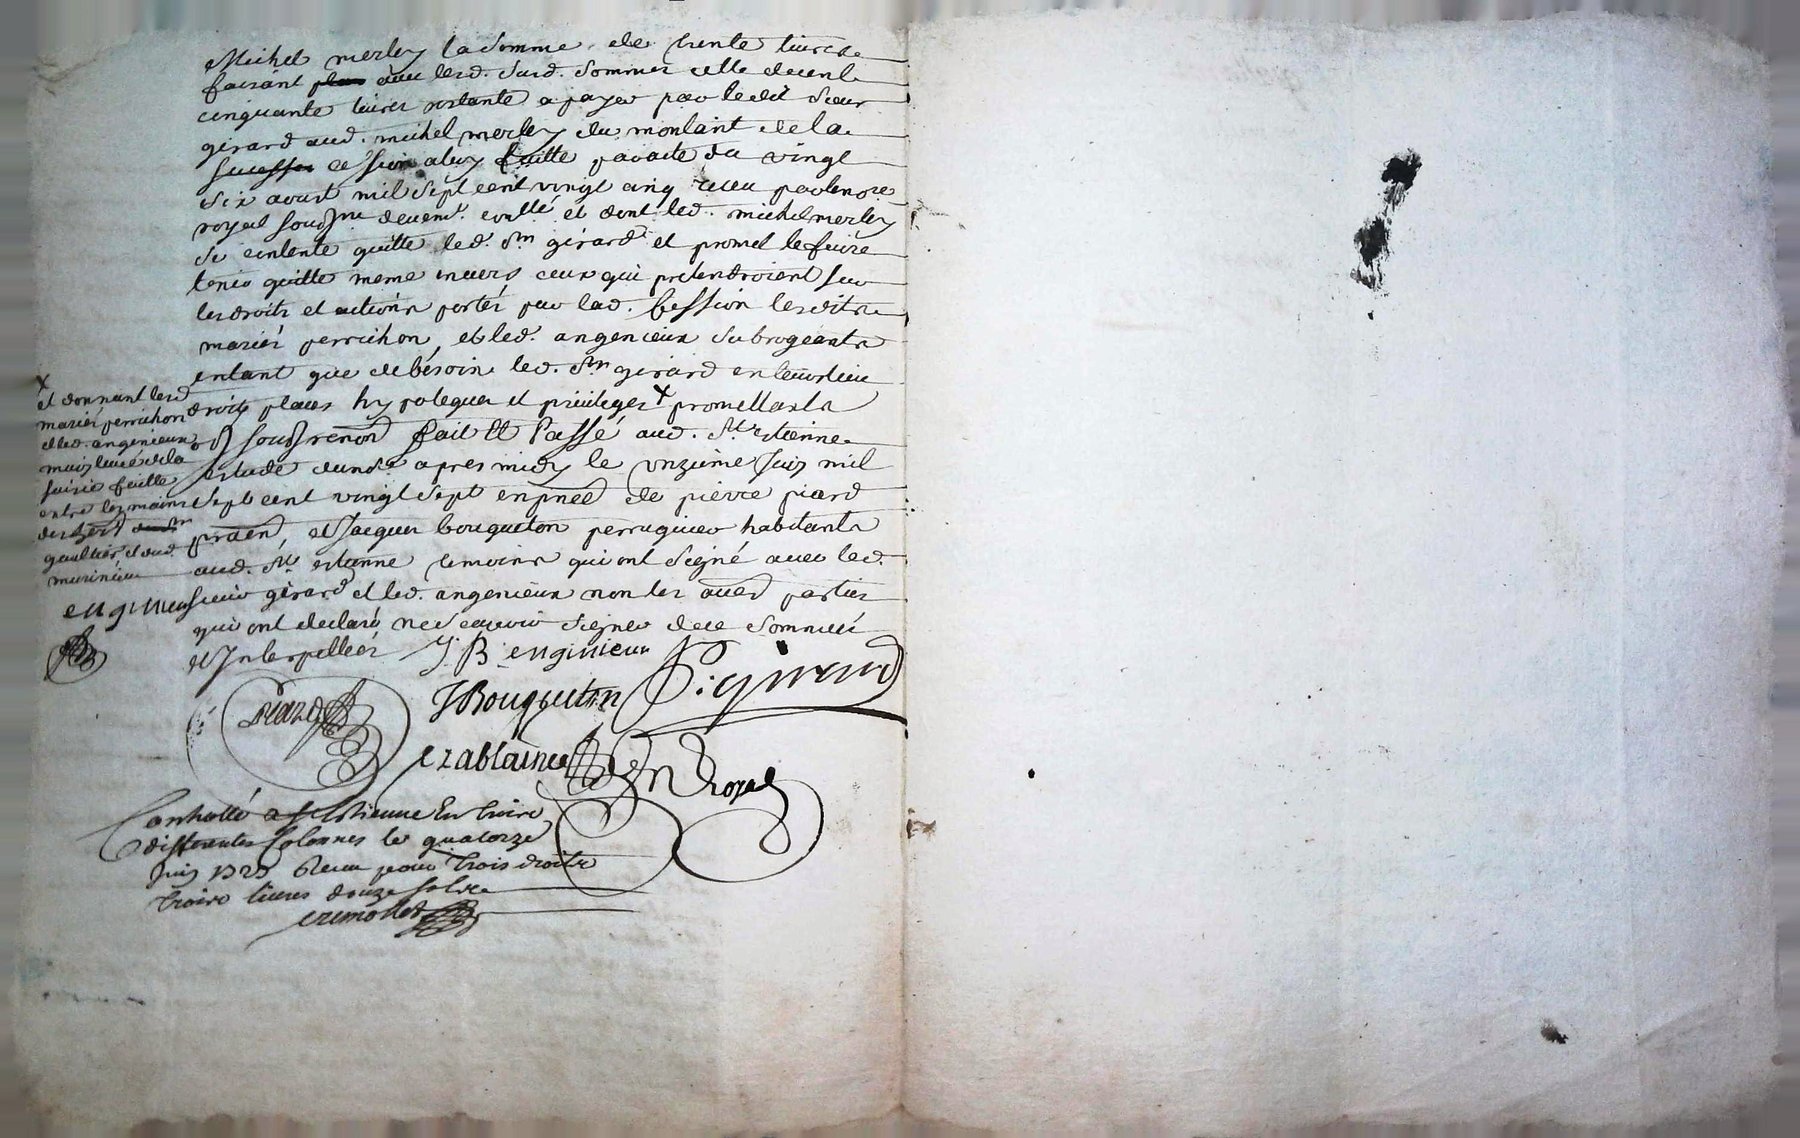 Michel merley la somme de trente livres
faisant avec lesd. susd. sommes celle decent
cinquante livres restante a payer par ledit sieur
girard aud. michel merley du montant de la
cession aluy faitte pavacte du vingt
six aoust mil sept cent vingt cinq receu par lenore
royal soussne deuemt. conllé et dont led. michel merley
se contente quitte led. sr girard et promet le faire
tenir quitte meme envers ceux qui pretendroient sur
les droits et actions portés par lad. Cession lesdits
mariés perrichon, et led. angenieux subrogeants
entant que debésoin led. sr girard en leur lieu
droits places hypoteques et privileges x promettants
obl soubz renond fait Et Passé aud. St. etienne
estude dund. apres midy le unzieme Juin mil
sept cent vingt sept en pnce de pierre piard
praen, et Jacques bouqueton perruquier habitants
aud. St. etienne temoins qui ont signé avec led.
sieur girard et led. angenieux non les autres parties
qui ont declaré ne sçavoir signer de ce sommés
et Interpellés
x
et donnant lesd
mariés perrichon
et led. angenieux
main levée de la
saisie faitte
entre les mains
gaultier et dud.
murinieu
engenieu
J B engenieux
Piard
JBouqueton
P. girard
crablaine
Nre Royal
Controllé a St Etienne En trois
differentes Colonnes le quatorze
Juin 1727 Receu pour trois droits
trois livres douze sols
cremollet